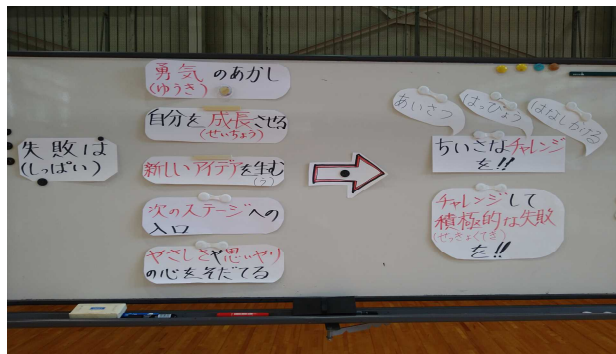 失敗は
(しっぱい)
勇気のあかし
(ゆうき)
自分を成長させる
(せいちょう)
新しいアイデアを生む
(う)
次のステージへの
入口
やさしさや思いヤリ
の心をそだてる
あいさつ
はっぴょう
はなしかける
ちいさなチャレンジ
を!!
チャレンジして
積極的な失敗
(せっきょくてき)
を!!